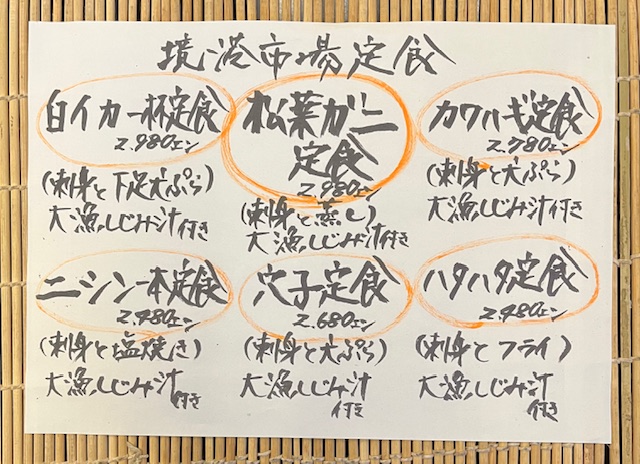 境港市場定食
白イカ一杯定食
2.980ェン
(刺身と下足天ぷら)
大漁しじみ汁付き
松葉ガニ
定食
2.980ェン
(刺身と蒸し)
大漁しじみ汁付き
カワハギ定食
2.780ェン
(刺身と天ぷら)
大漁しじみ汁付き
ニシン一本定食
2.480ェン
(刺身と塩焼き)
大漁しじみ汁
付き
穴子定食
2.680ェン
(刺身と天ぷら)
大漁しじみ汁
付き
ハタハタ定食
2.480ェン
(刺身とフライ)
大漁しじみ汁
付き